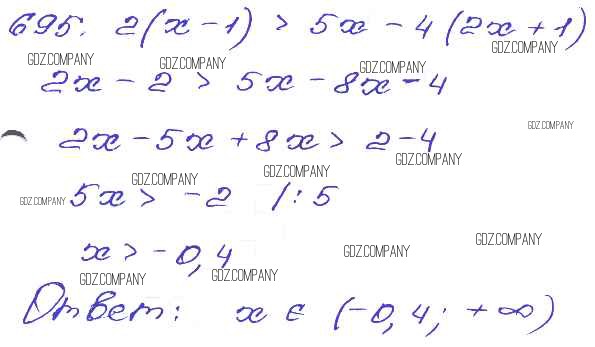 695. 2(x - 1) > 5x - 4(2x + 1)
GDZ.COMPANY GDZ.COMPANY GDZ.COMPANY GDZ.COMPANY
2x - 2 > 5x - 8x - 4
2x - 5x + 8x > 2 - 4
GDZ.COMPANY GDZ.COMPANY
GDZ.COMPANY GDZ.COMPANY
5x > -2 /: 5
GDZ.COMPANY
x > -0,4
GDZ.COMPANY GDZ.COMPANY GDZ.COMPANY GDZ.COMPANY
Ответ: x ∈ (-0,4; +∞)